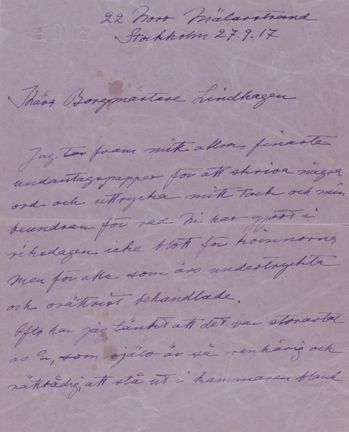 22 Norr Mälarstrand
Stockholm 27.9.17
Kära Borgmästare Lindhagen
Jag tar fram mitt allra finaste
undantagspapper för att skriva några
ord och uttrycka mitt tack och min
beundran för vad Ni har gjort i
riksdagen icke blott för kvinnorna
men för alla som äro undertryckta
och orättvist behandlade.
Ofta har jag tänkt att det var storartat
av Er, som själv är så renhårig och
rättrådig, att stå ut i kammaren bland